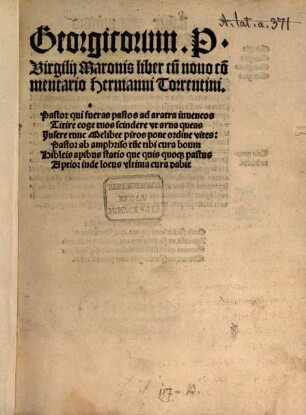 A. lat. a. 371
Georgicorum . P.
Virgilij Maronis liber cū nouo cō
mentario Hermanni Torrentini.
Pastor qui fueras pastos ad aratra iuuencos
Titire coge tuos scindere vt arua queas
Insere nunc Melibee piros pone ordine vites:
Pastor ab amphriso
tibi cura boum
Hibleis apibus statio que quis quoqʒ pastus
Aptior inde locus vltima cura dabit
BIBLIOTHECA
REGIA
MONACENSIS